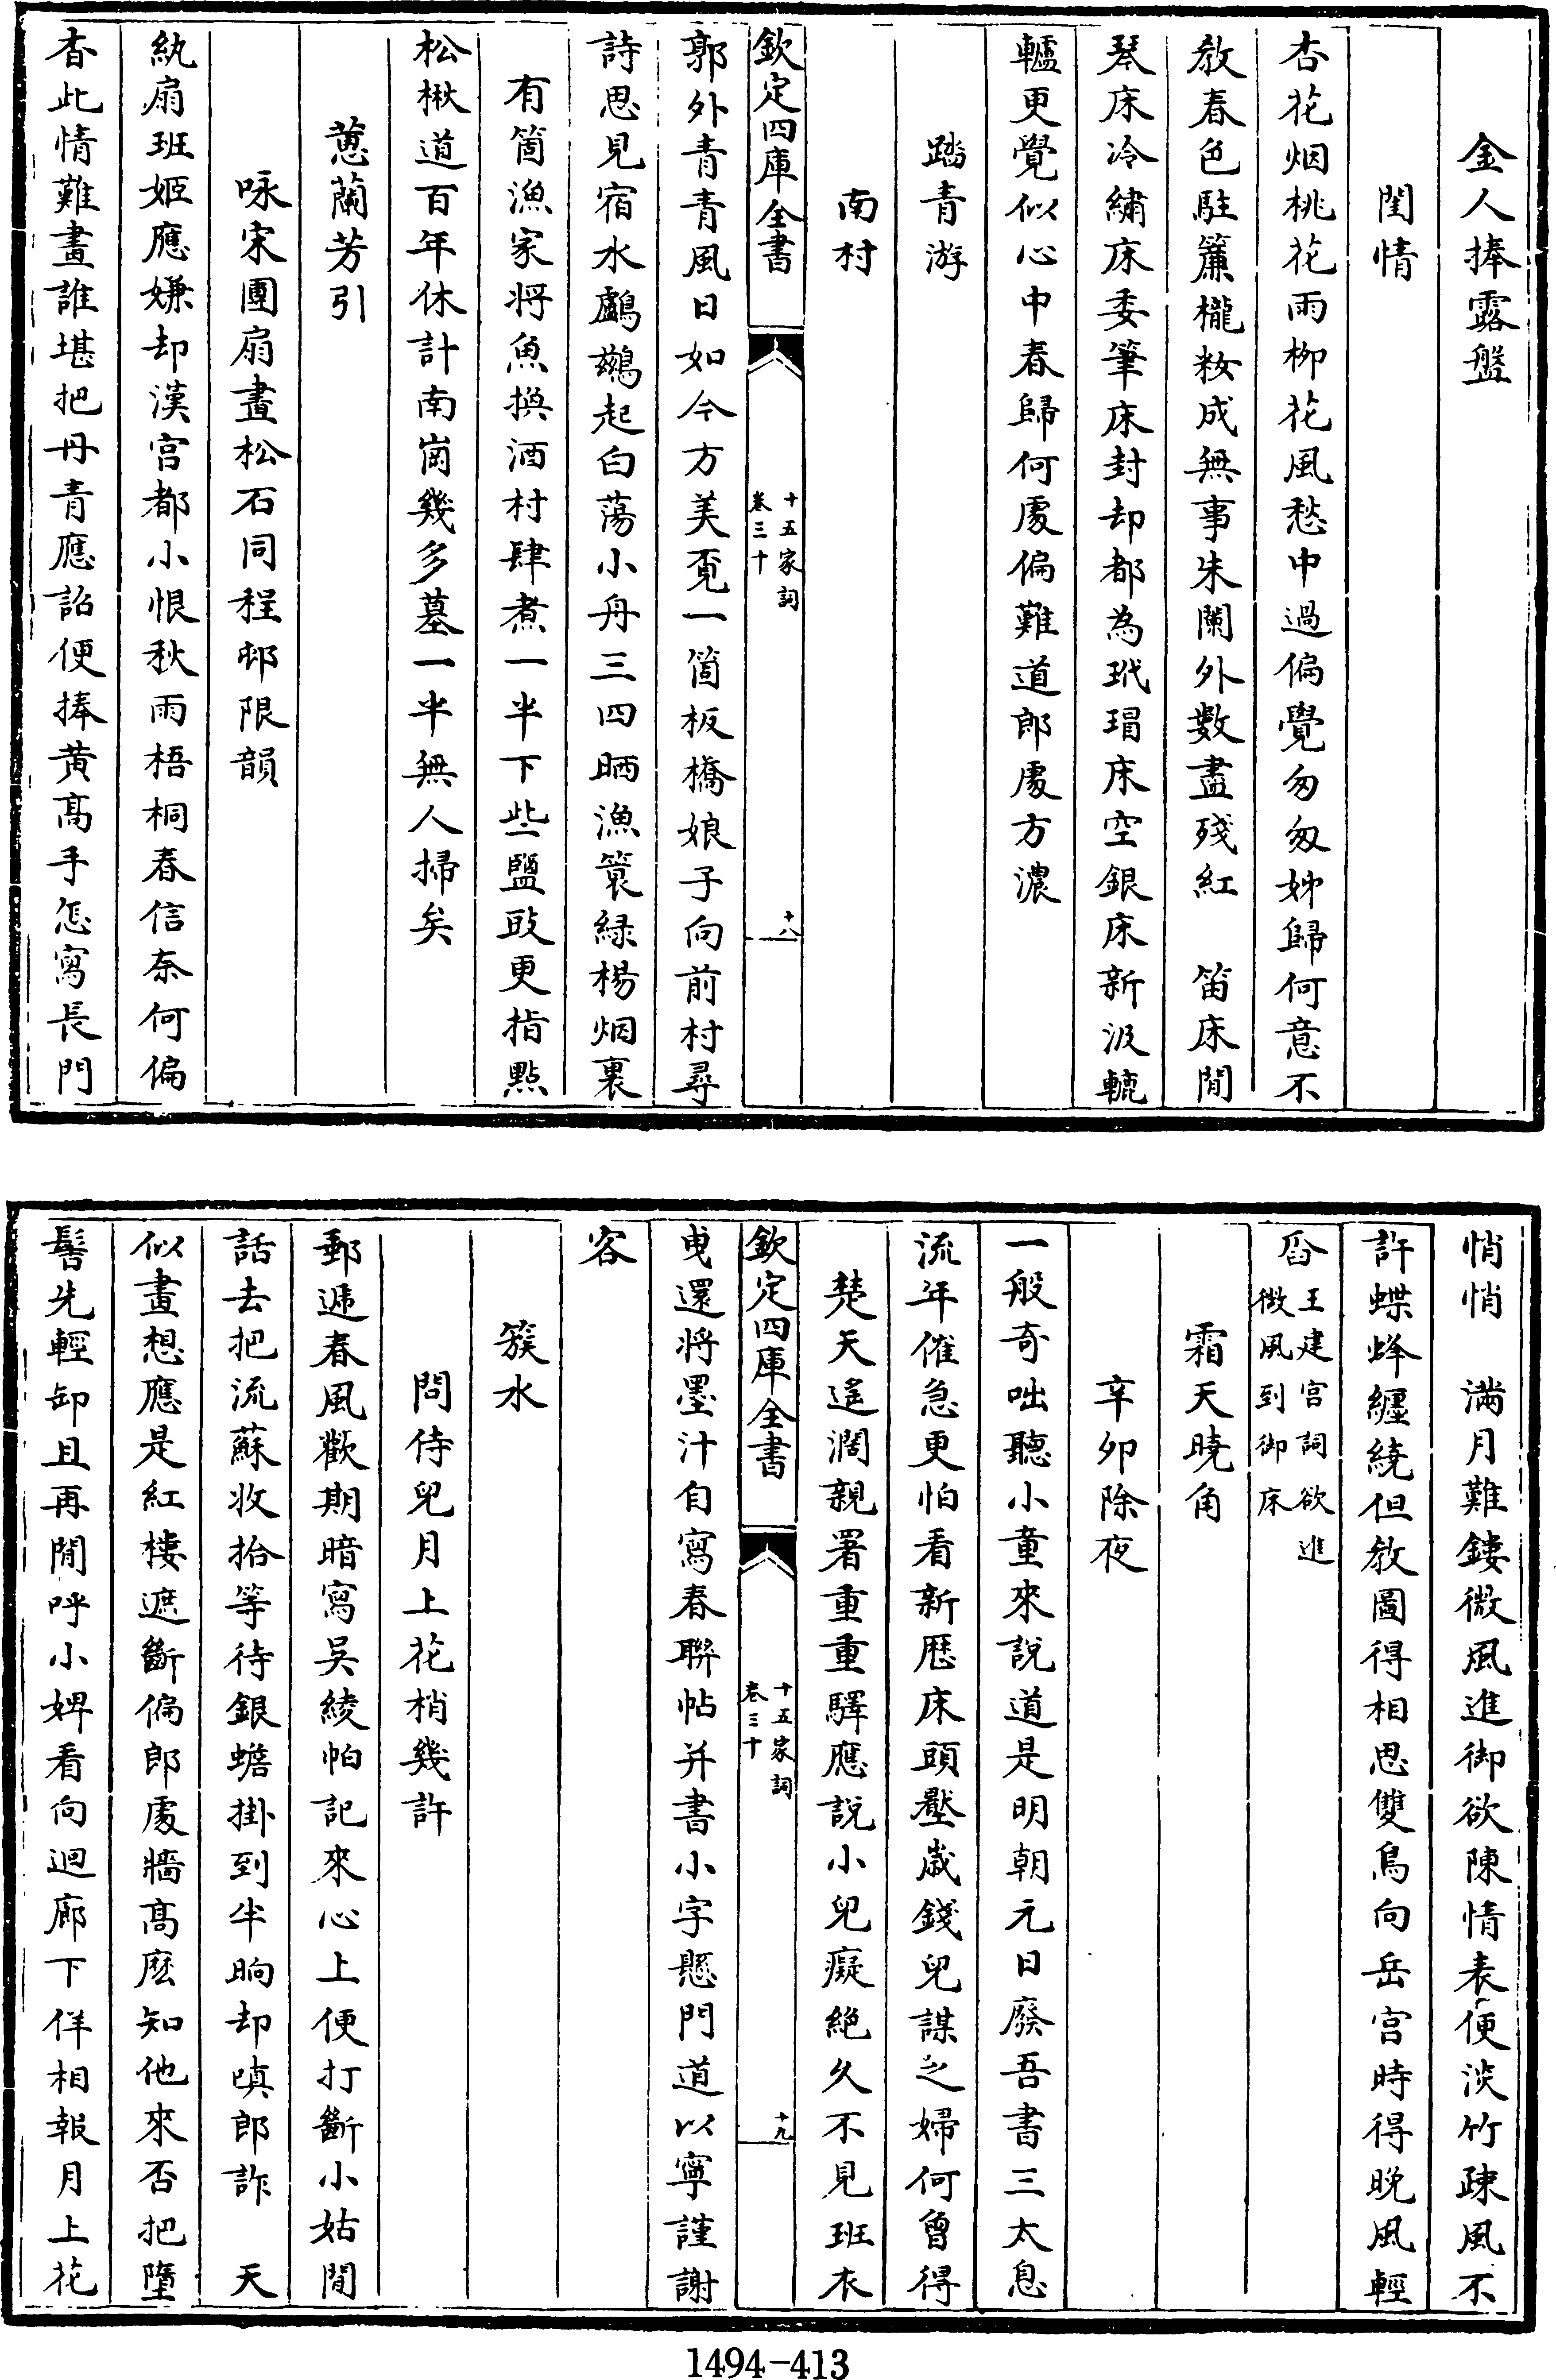 金人捧露盤
閨情
杏花烟桃花雨柳花風愁中過偏覺匆匆姊歸何意不
敎春色駐簾櫳粧成無事朱闌外數盡殘紅　笛床閒
琴床冷繡床委筆床封却都為玳瑁床空銀床新汲轆
轤更覺似心中春歸何處偏難道郎處方濃
踏青游
南村
欽定四庫全書
十五家詞
卷三十
十八
郭外青青風日如今方美覔一箇板橋娘子向前村尋
詩思見宿水鸕鷀起白蕩小舟三四晒漁簑緑楊烟裏
有箇漁家将魚換酒村肆煮一半下些鹽豉更指點
松楸道百年休計南崗幾多墓一半無人掃矣
蕙蘭芳引
咏宋團扇畫松石同程邨限韻
紈扇班姬應嫌却漢宮都小恨秋雨梧桐春信奈何偏
杳此情難畫誰堪把丹青應詔便捧黄高手怎寫長門
悄悄　滿月難鏤微風進御欲陳情表便淡竹疎風不
許蝶蜂纒繞但敎圖得相思雙鳥向岳宮時得晚風輕
舀
王建宮詞欲進
微風到御床
霜天曉角
辛卯除夜
一般奇咄聽小童來說道是明朝元日廢吾書三太息
流年催急更怕看新厯床頭壓歲錢兒謀之婦何曾得
楚天遙濶親署重重驛應說小兒癡絶久不見班衣
欽定四庫全書
十五家詞
卷三十
十九
曵還将墨汁自寫春聯帖并書小字懸門道以寧謹謝
客
簇水
問侍兒月上花梢幾許
郵遞春風歡期暗寫吳綾帕記來心上便打斷小姑閒
話去把流蘇收拾等待銀蟾掛到半晌却嗔郎詐　天
似畫想應是紅樓遮斷偏郎處牆高麽知他來否把墮
髻先輕卸且再閒呼小婢看向迴廊下佯相報月上花
1494-413